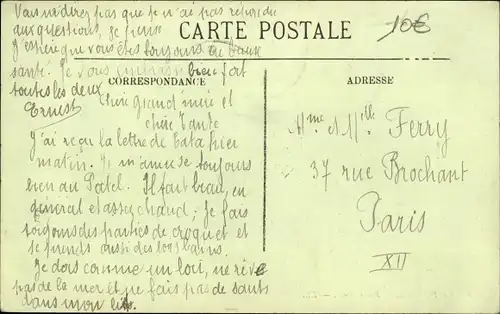 Vous ne direz pas que je n'ai pas repondu
aux questions, je pense
J'espère que vous êtes toujours en bonne
santé. Je vous embrasse bien fort
toutes les deux
Ernest
CARTE POSTALE
10€
CORRESPONDANCE
ADRESSE
Chère grand'mère et
chère tante
J'ai reçu la lettre de tata hier
matin. Je m'amuse toujours
bien au Patel. Il fait beau, en
général et assez chaud; je fais
toujours des parties de croquet et
je prends aussi des bains.
Je dors comme un loir, ne rêve
pas de la mer et ne fais pas de sauts
dans mon lit.
Mme et Mlle Ferry
37 rue Brochant
Paris
XII